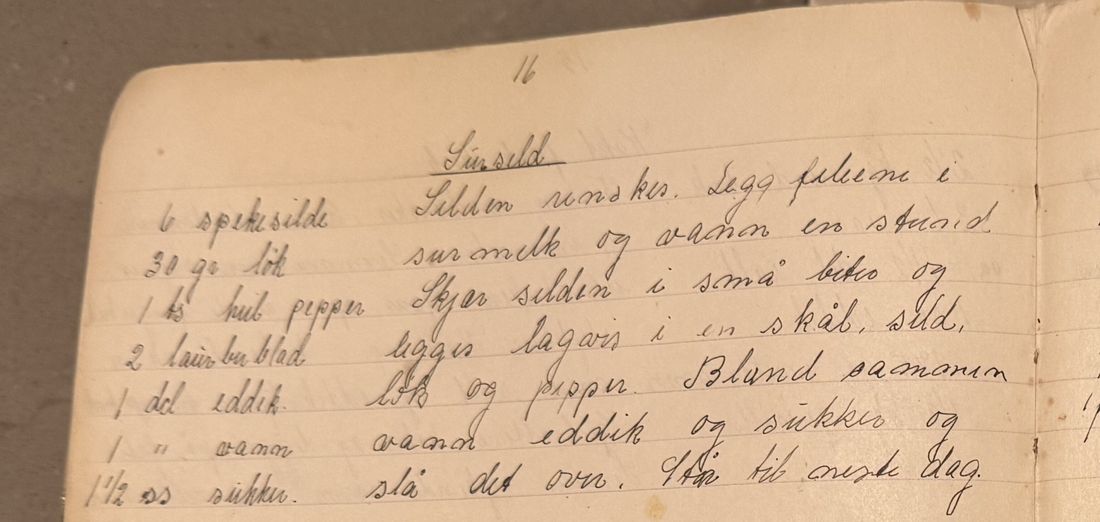 16
Sursild
6 spekesilde
30 gr løk
1 ts hel pepper
2 laurbærblad
1 dl eddik.
1 " vann
1 1/2 ss sukker.
Silden renskes. Legg fileene i
sur melk og vann en stund
Skjær silden i små biter og
legges lagvis i en skål, sild,
løk og pepper. Bland sammen
vann eddik og sukker og
slå det over. Står til neste dag.